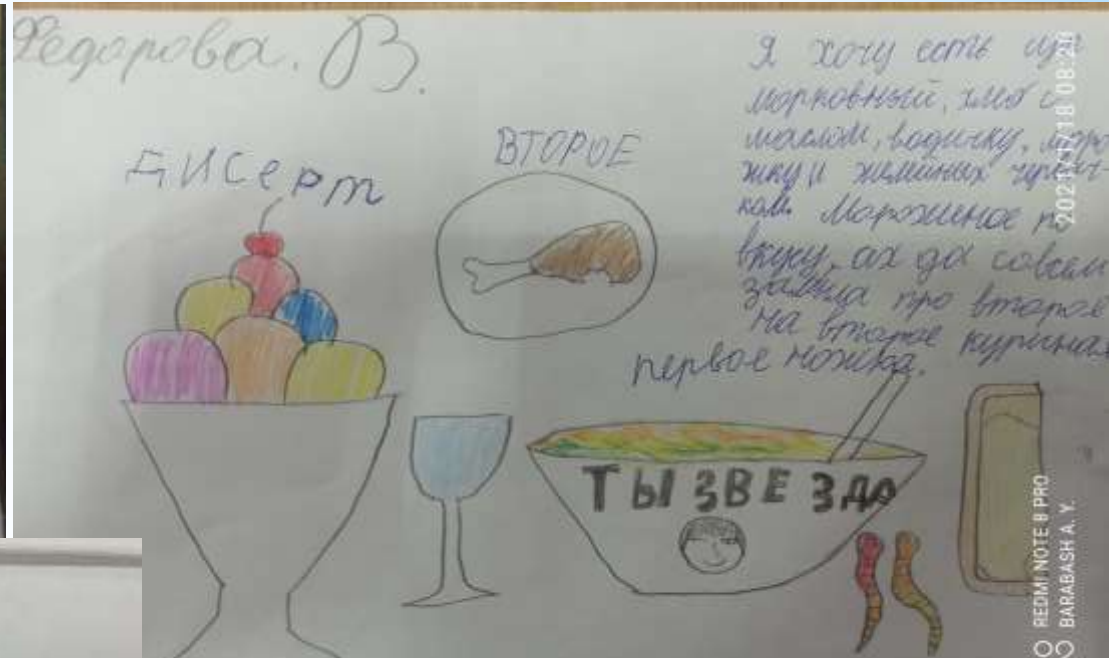 Фёдорова. В.
Я хочу есть суп
морковный, хлеб с
маслом, водичку, моро
жку и желейных червяч-
ков. Мороженое по
вкусу, ах да совсем
забыла про второе
на второе куриная
ножка.
дисерт
ВТОРОЕ
первое
ТЫ ЗВЕЗДА
2021/11/18 08:20
REDMI NOTE 8 PRO
BARABASH A. Y.